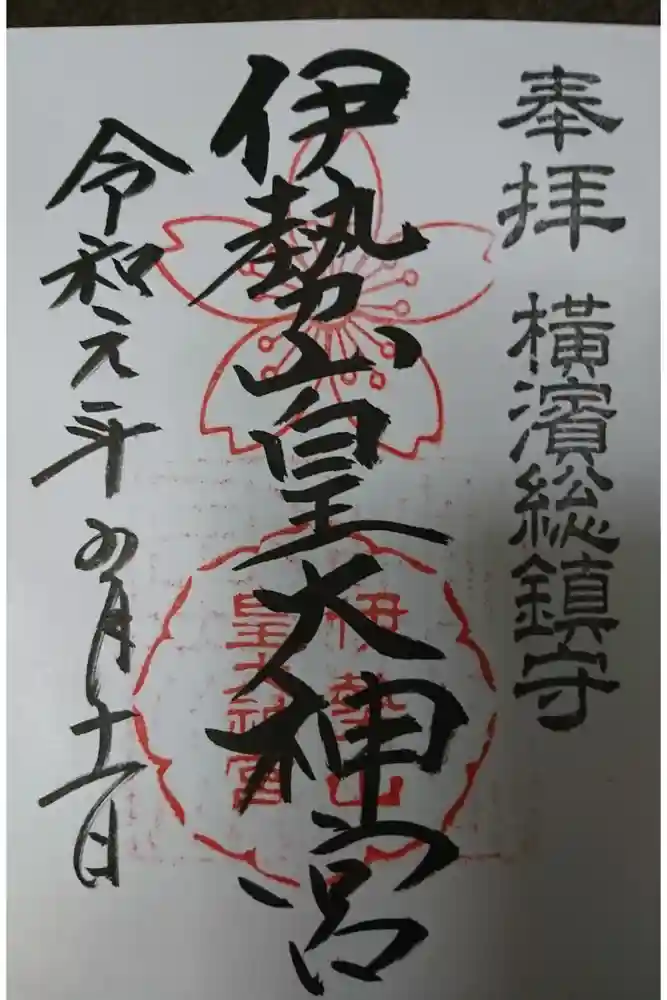 奉拝 横濱総鎮守
伊勢山皇大神宮
伊勢山
皇大神宮
令和元年 月十一日